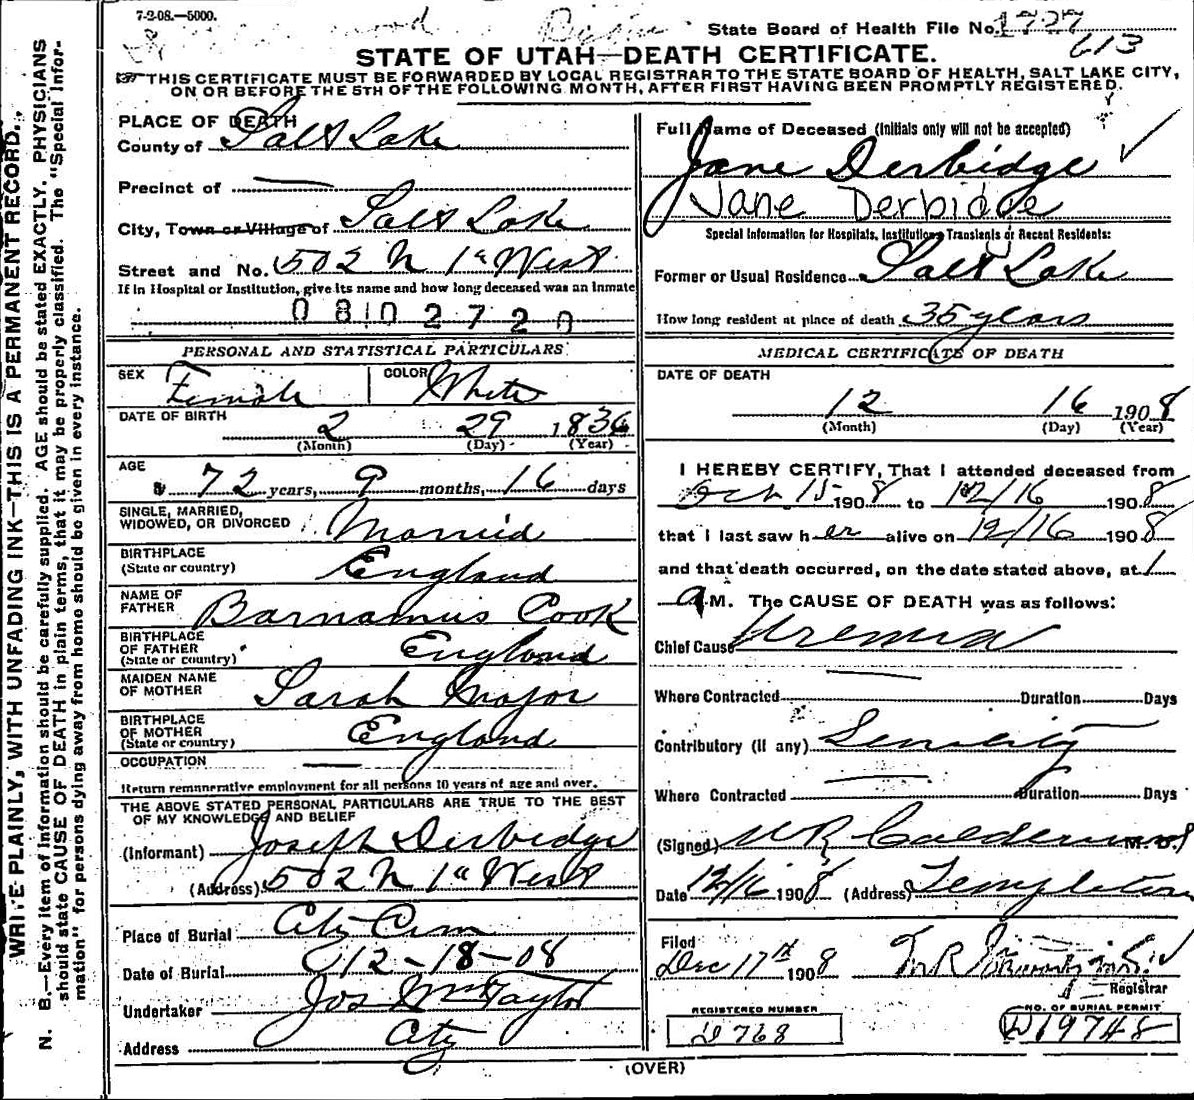 7-2-08.—5000.
State Board of Health File No. 1727
613
STATE OF UTAH—DEATH CERTIFICATE.
THIS CERTIFICATE MUST BE FORWARDED BY LOCAL REGISTRAR TO THE STATE BOARD OF HEALTH, SALT LAKE CITY,
ON OR BEFORE THE 5TH OF THE FOLLOWING MONTH, AFTER FIRST HAVING BEEN PROMPTLY REGISTERED.
WRITE PLAINLY, WITH UNFADING INK—THIS IS A PERMANENT RECORD.
N. B.—Every item of information should be carefully supplied. AGE should be stated EXACTLY. PHYSICIANS
should state CAUSE OF DEATH in plain terms, that it may be properly classified. The "Special Infor-
mation" for persons dying away from home should be given in every instance.
PLACE OF DEATH
County of Salt Lake
Precinct of
City, Town or Village of Salt Lake
Street and No. 502 N 1st West
If in Hospital or Institution, give its name and how long deceased was an inmate
08102720
PERSONAL AND STATISTICAL PARTICULARS
SEX Female COLOR White
DATE OF BIRTH 2 29 1836
(Month) (Day) (Year)
AGE 72 years, 9 months, 16 days
SINGLE, MARRIED,
WIDOWED, OR DIVORCED Married
BIRTHPLACE
(State or country) England
NAME OF
FATHER Barnamus Cook
BIRTHPLACE
OF FATHER
(State or country) England
MAIDEN NAME
OF MOTHER Sarah Major
BIRTHPLACE
OF MOTHER
(State or country) England
OCCUPATION
Return remunerative employment for all persons 10 years of age and over.
THE ABOVE STATED PERSONAL PARTICULARS ARE TRUE TO THE BEST
OF MY KNOWLEDGE AND BELIEF
(Informant) Joseph Derbidge
(Address) 502 N 1st West
Place of Burial City Cem
Date of Burial 12-18-08
Undertaker Jos Wm Taylor
Address City
Full Name of Deceased (Initials only will not be accepted)
Jane Derbidge
Jane Derbidge
Special Information for Hospitals, Institutions, Transients or Recent Residents:
Former or Usual Residence Salt Lake
How long resident at place of death 35 years
MEDICAL CERTIFICATE OF DEATH
DATE OF DEATH
12 16 1908
(Month) (Day) (Year)
I HEREBY CERTIFY, That I attended deceased from
Oct 15 1908 to 12/16 1908
that I last saw her alive on 12/16 1908
and that death occurred, on the date stated above, at 1
A M. The CAUSE OF DEATH was as follows:
Chief Cause Uremia
Where Contracted Duration Days
Contributory (if any) Senility
Where Contracted Duration Days
(Signed) W R Calderwood M. D.
Date 12/16 1908 (Address) Templeton
Filed
Dec 17th 1908
Registrar
REGISTERED NUMBER
D768
NO. OF BURIAL PERMIT
D19748
(OVER)